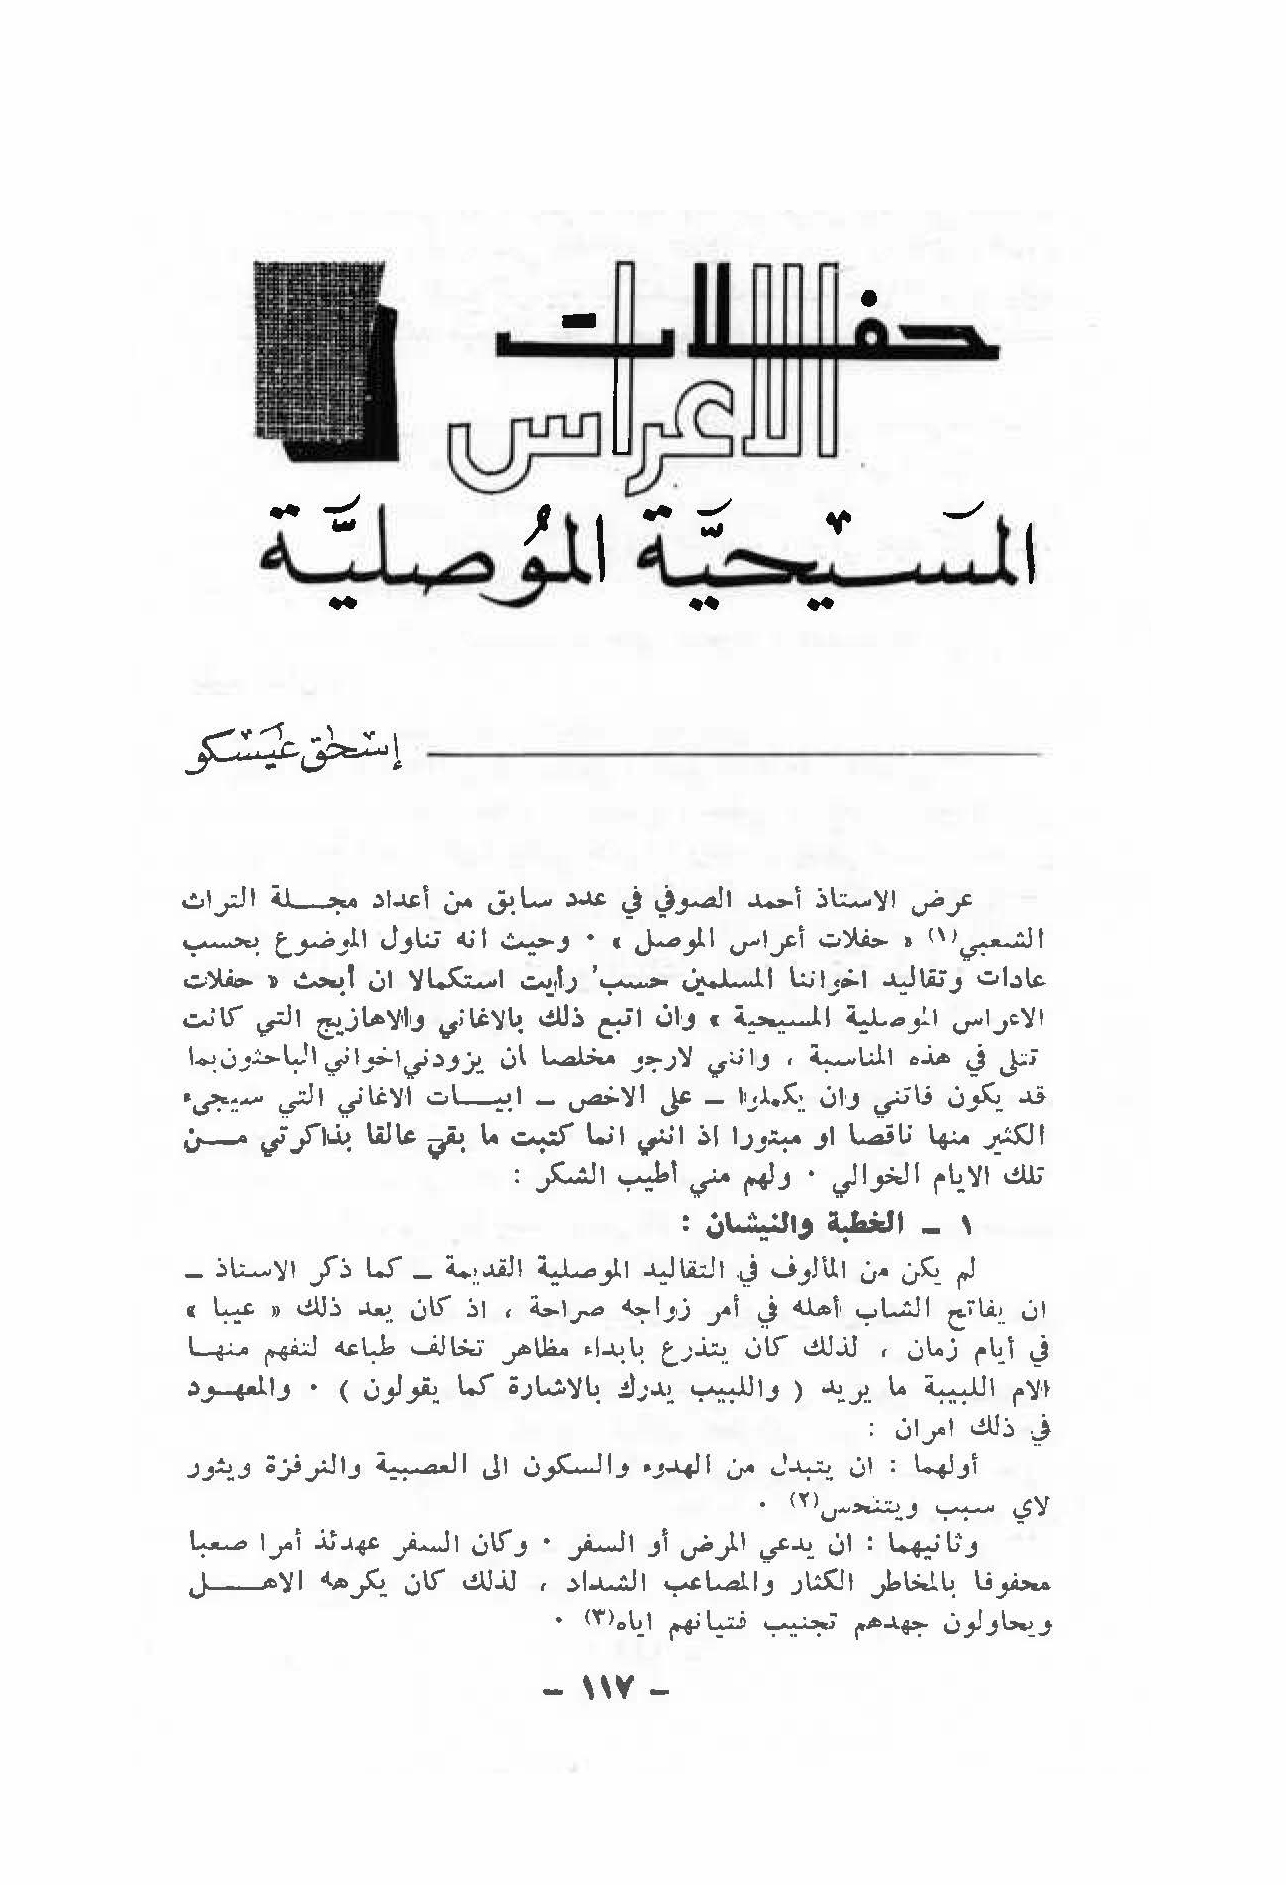 حفلات
الاعراس
المَسيحيَّة المُوصليَّة
إسحٰق عيَسكو
عرض الاستاذ أحمد الصوفي في عدد سابق من أعداد مجلة التراث
الشعبي(١) « حفلات أعراس الموصل » ٠ وحيث انه تناول الموضوع بحسب
عادات وتقاليد اخواننا المسلمين حسب' رأيت استكمالا ان أبحث « حفلات
الاعراس الموصلية المسيحية » وان اتبع ذلك بالاغاني والاهازيج التي كانت
تتلى في هذه المناسبة ، وانني لارجو مخلصا ان يزودني اخواني الباحثون بما
قد يكون فاتني وان يكملوا – على الاخص – ابيات الاغاني التي سيجيء
الكثير منها ناقصا او مبتورا اذ انني انما كتبت ما بقي عالقا بذاكرتي من
تلك الايام الخوالي ٠ ولهم مني أطيب الشكر :
١ – الخطبة والنيشان :
لم يكن من المألوف في التقاليد الموصلية القديمة – كما ذكر الاستاذ –
ان يفاتح الشاب أهله في أمر زواجه صراحة ، اذ كان يعد ذلك « عيبا »
في أيام زمان ، لذلك كان يتذرع بابداء مظاهر تخالف طباعه لتفهم منها
الام اللبيبة ما يريد ( واللبيب يدرك بالاشارة كما يقولون ) ٠ والمعهود
في ذلك امران :
أولهما : ان يتبدل من الهدوء والسكون الى العصبية والنرفزة ويثور
لاي سبب ويتنحس(٢) ٠
وثانيهما : ان يدعي المرض أو السفر ٠ وكان السفر عهدئذ أمرا صعبا
محفوفا بالمخاطر الكثار والمصاعب الشداد ، لذلك كان يكرهه الاهل
ويحاولون جهدهم تجنيب فتيانهم اياه(٣) ٠
– ١١٧ –